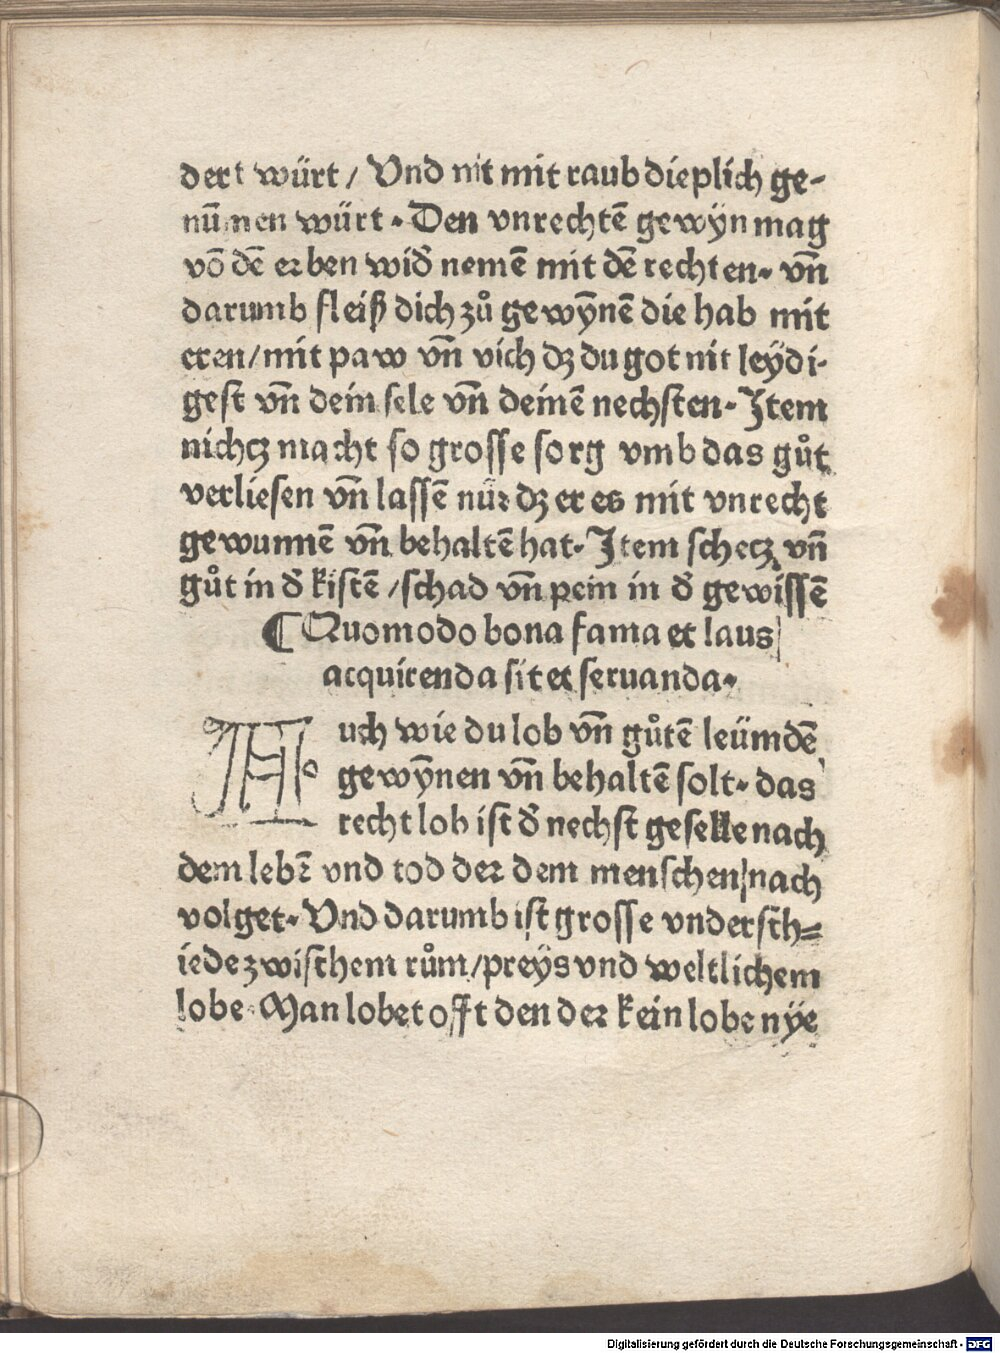 dert würt / Vnd nit mit raub dieplich ge-
nūmen würt · Den vnrechtē gewÿn mag
vō dē erben wid̉ nemē mit dē rechten · vn̄
darumb fleiß dich zů gewȳnē die hab mit
eren / mit paw vn̄ vich dz du got nit leÿdi-
gest vn̄ dein sele vn̄ deinē nechsten · Item
nichcz macht so grosse sorg vmb das gůt
verliesen vn̄ lassē nür dz er es mit vnrecht
gewunnē vn̄ behaltē hat · Item schecz vn̄
gůt in d̉ kistē / schad vn̄ pein in d̉ gewissē
¶ Quomodo bona fama et laus
acquirenda sit et seruanda ·
Auch wie du lob vn̄ gůtē leümdē
gewȳnen vn̄ behaltē solt · das
recht lob ist d̉ nechst geselle nach
dem lebē vnd tod der dem menschen nach
volget · Vnd darumb ist grosse vndersch=
iede zwischem rům / preÿs vnd weltlichem
lobe · Man lobet offt den der kein lobe nÿe
Digitalisierung gefördert durch die Deutsche Forschungsgemeinschaft - DFG